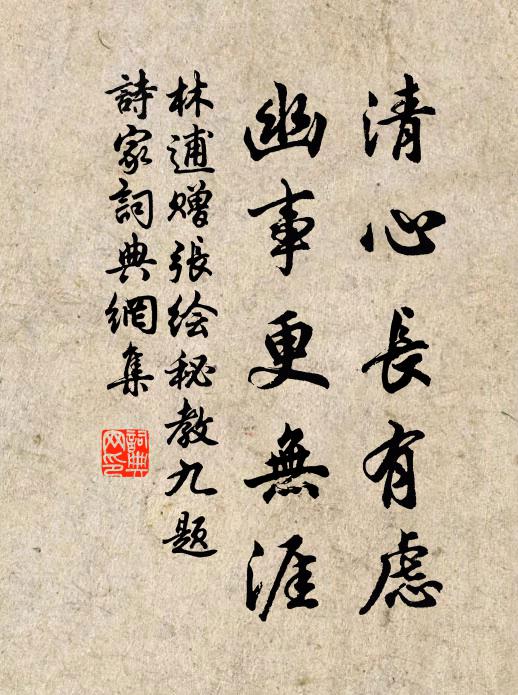 清心長有虑
幽事更無涯
林逋赠張绘秘教九题
詩家詞典網集
詞典網印